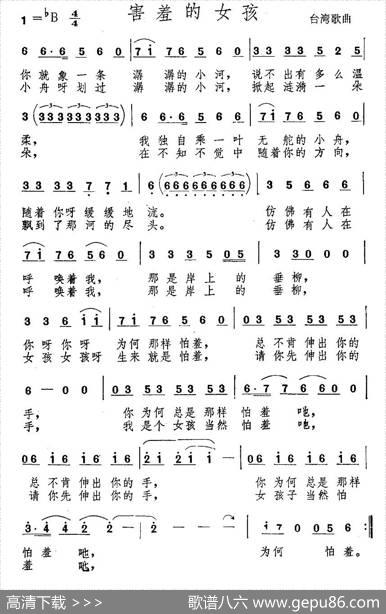 害羞的女孩
1=♭B 4/4
台湾歌曲
6 6·6 5 6 0 | 7i 76 5 6 0 | 3 3 3 3 5 2 5 |
你就象一条 潺潺的小河，说不出有多么温
小舟呀划过 潺潺的小河，掀起涟漪一朵
3 (333333333) | 6 6·6 5 6 0 | 7i 76 5 6 0 |
柔， 我独自乘一叶无舵的小舟，
朵， 在不知不觉中随着你的方向，
3 3 3 3 7 7 1 | 6 (6666666666) | 3 5 6 6 6 |
随着你呀缓缓地流。 仿佛有人在
飘到了那河的尽头。 仿佛有人在
7i 76 5 6 0 | 3 3 3 5 05 | 3 3 0 0 |
呼唤着我， 那是岸上的垂柳，
呼唤着我， 那是岸上的垂柳，
3 3 6 ii | 7i 76 5 6 0 | 03 53 53 53 |
你呀你呀 为何那样怕羞， 总不肯伸出你的
女孩女孩呀 生来就是怕羞， 请你先伸出你的
6 — 0 0 | 03 53 53 53 | 6·7 76 6 0 |
手， 你为何总是那样怕羞吔，
手， 我是个女孩当然怕羞吔，
06 i6 i6 i6 | 2i 2i i — | 06 i6 i6 i6 |
总不肯伸出你的手， 你为何总是那样
请你先伸出你的手， 女孩子当然怕
3·4 4 2 2 — | 2 — — — | i7 0 0 05 |
怕羞吔， 为何怕羞。
羞吔，
高清下载 >>>
歌谱八六 www.gepu86.com